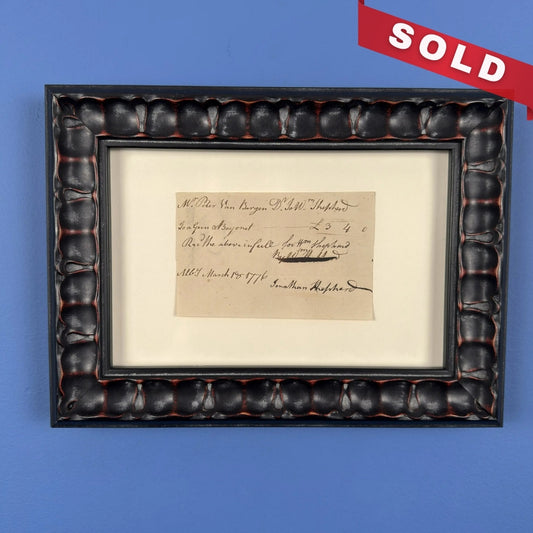 SOLD
Mr. Peter Van Bergen Dr. to Wm. Shepherd
To a Gunn & Bayonet £ 3 4 0
Recd the above in full for Wm Shepherd
Albt. March 15 1776
Jonathan Shepherd